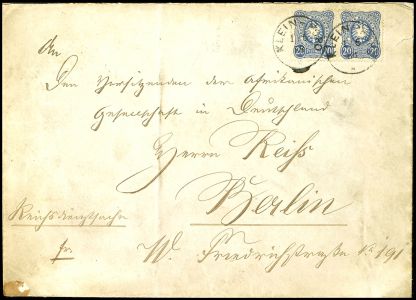 KLEIN KLEIN
20 20
An
Den Vorsitzenden der Afrikanischen
Gesellschaft in Deutschland
Herrn Reiß
Berlin
Reichsdienstsache
fr.
W. Friedrichstraße No 191